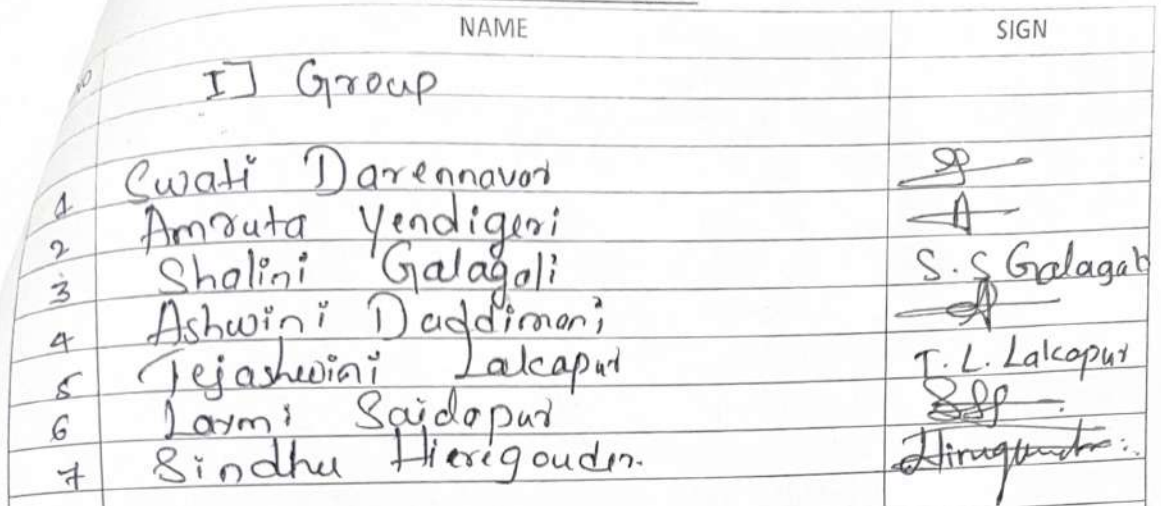 NO NAME SIGN
I] Group
1 Swati Darennavar
2 Amruta Yendigeri A
3 Shalini Galagali S.S Galagali
4 Ashwini Daddimani A
5 Tejashwini Lalcapur T. L. Lalcapur
6 Laxmi Saidapur
7 Sindhu Hieregouder.